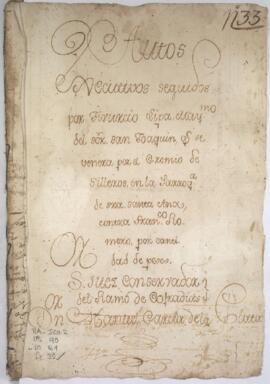 N 33
Autos
Executivos seguidos
por Tiburcio Lira, may^mo
del sōr. san Joaquin, q̃ se
venera por el Gremio de
Silleros, en la Parroq^a
de sra. santa Ana,
contra Fran^co Ro
mero, por canti
dad de pesos.
S. Juez Conservador
del Ramo de Cofradias
Dn Manuel Garcia de la Plata